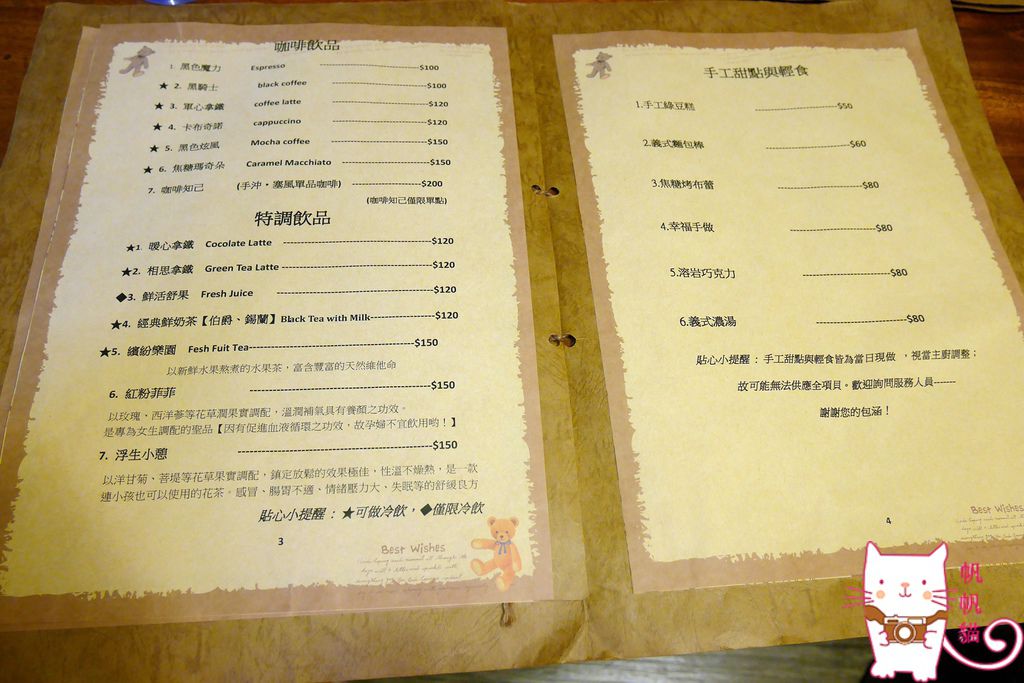 咖啡飲品
1. 黑色魔力 Espresso ---$100
★ 2. 黑騎士 black coffee ---$100
★ 3. 軍心拿鐵 coffee latte ---$120
★ 4. 卡布奇諾 cappuccino ---$120
★ 5. 黑色炫風 Mocha coffee ---$150
★ 6. 焦糖瑪奇朵 Caramel Macchiato ---$150
7. 咖啡知己 (手沖・塞風單品咖啡) ---$200
(咖啡知己僅限單點)
特調飲品
★1. 暖心拿鐵 Cocolate Latte ---$120
★2. 相思拿鐵 Green Tea Latte ---$120
◆3. 鮮活舒果 Fresh Juice ---$120
★4. 經典鮮奶茶【伯爵、錫蘭】Black Tea with Milk---$120
★5. 繽紛樂園 Fesh Fuit Tea---$150
以新鮮水果熬煮的水果茶，富含豐富的天然維他命
6. 紅粉菲菲 ---$150
以玫瑰、西洋蔘等花草潤果實調配，溫潤補氣具有養顏之功效。
是專為女生調配的聖品【因有促進血液循環之功效，故孕婦不宜飲用喲！】
7. 浮生小憩 ---$150
以洋甘菊、菩堤等花草果實調配，鎮定放鬆的效果極佳，性溫不燥熱，是一款
連小孩也可以使用的花茶。感冒、腸胃不適、情緒壓力大、失眠等的舒緩良方
貼心小提醒：★可做冷飲，◆僅限冷飲
3
Best Wishes
手工甜點與輕食
1.手工綠豆糕 ---$50
2.義式麵包棒 ---$60
3.焦糖烤布蕾 ---$80
4.幸福手做 ---$80
5.溶岩巧克力 ---$80
6.義式濃湯 ---$80
貼心小提醒：手工甜點與輕食皆為當日現做 ，視當主廚調整；
故可能無法供應全項目。歡迎詢問服務人員-------
謝謝您的包涵！
4
Best Wishes
帆帆貓